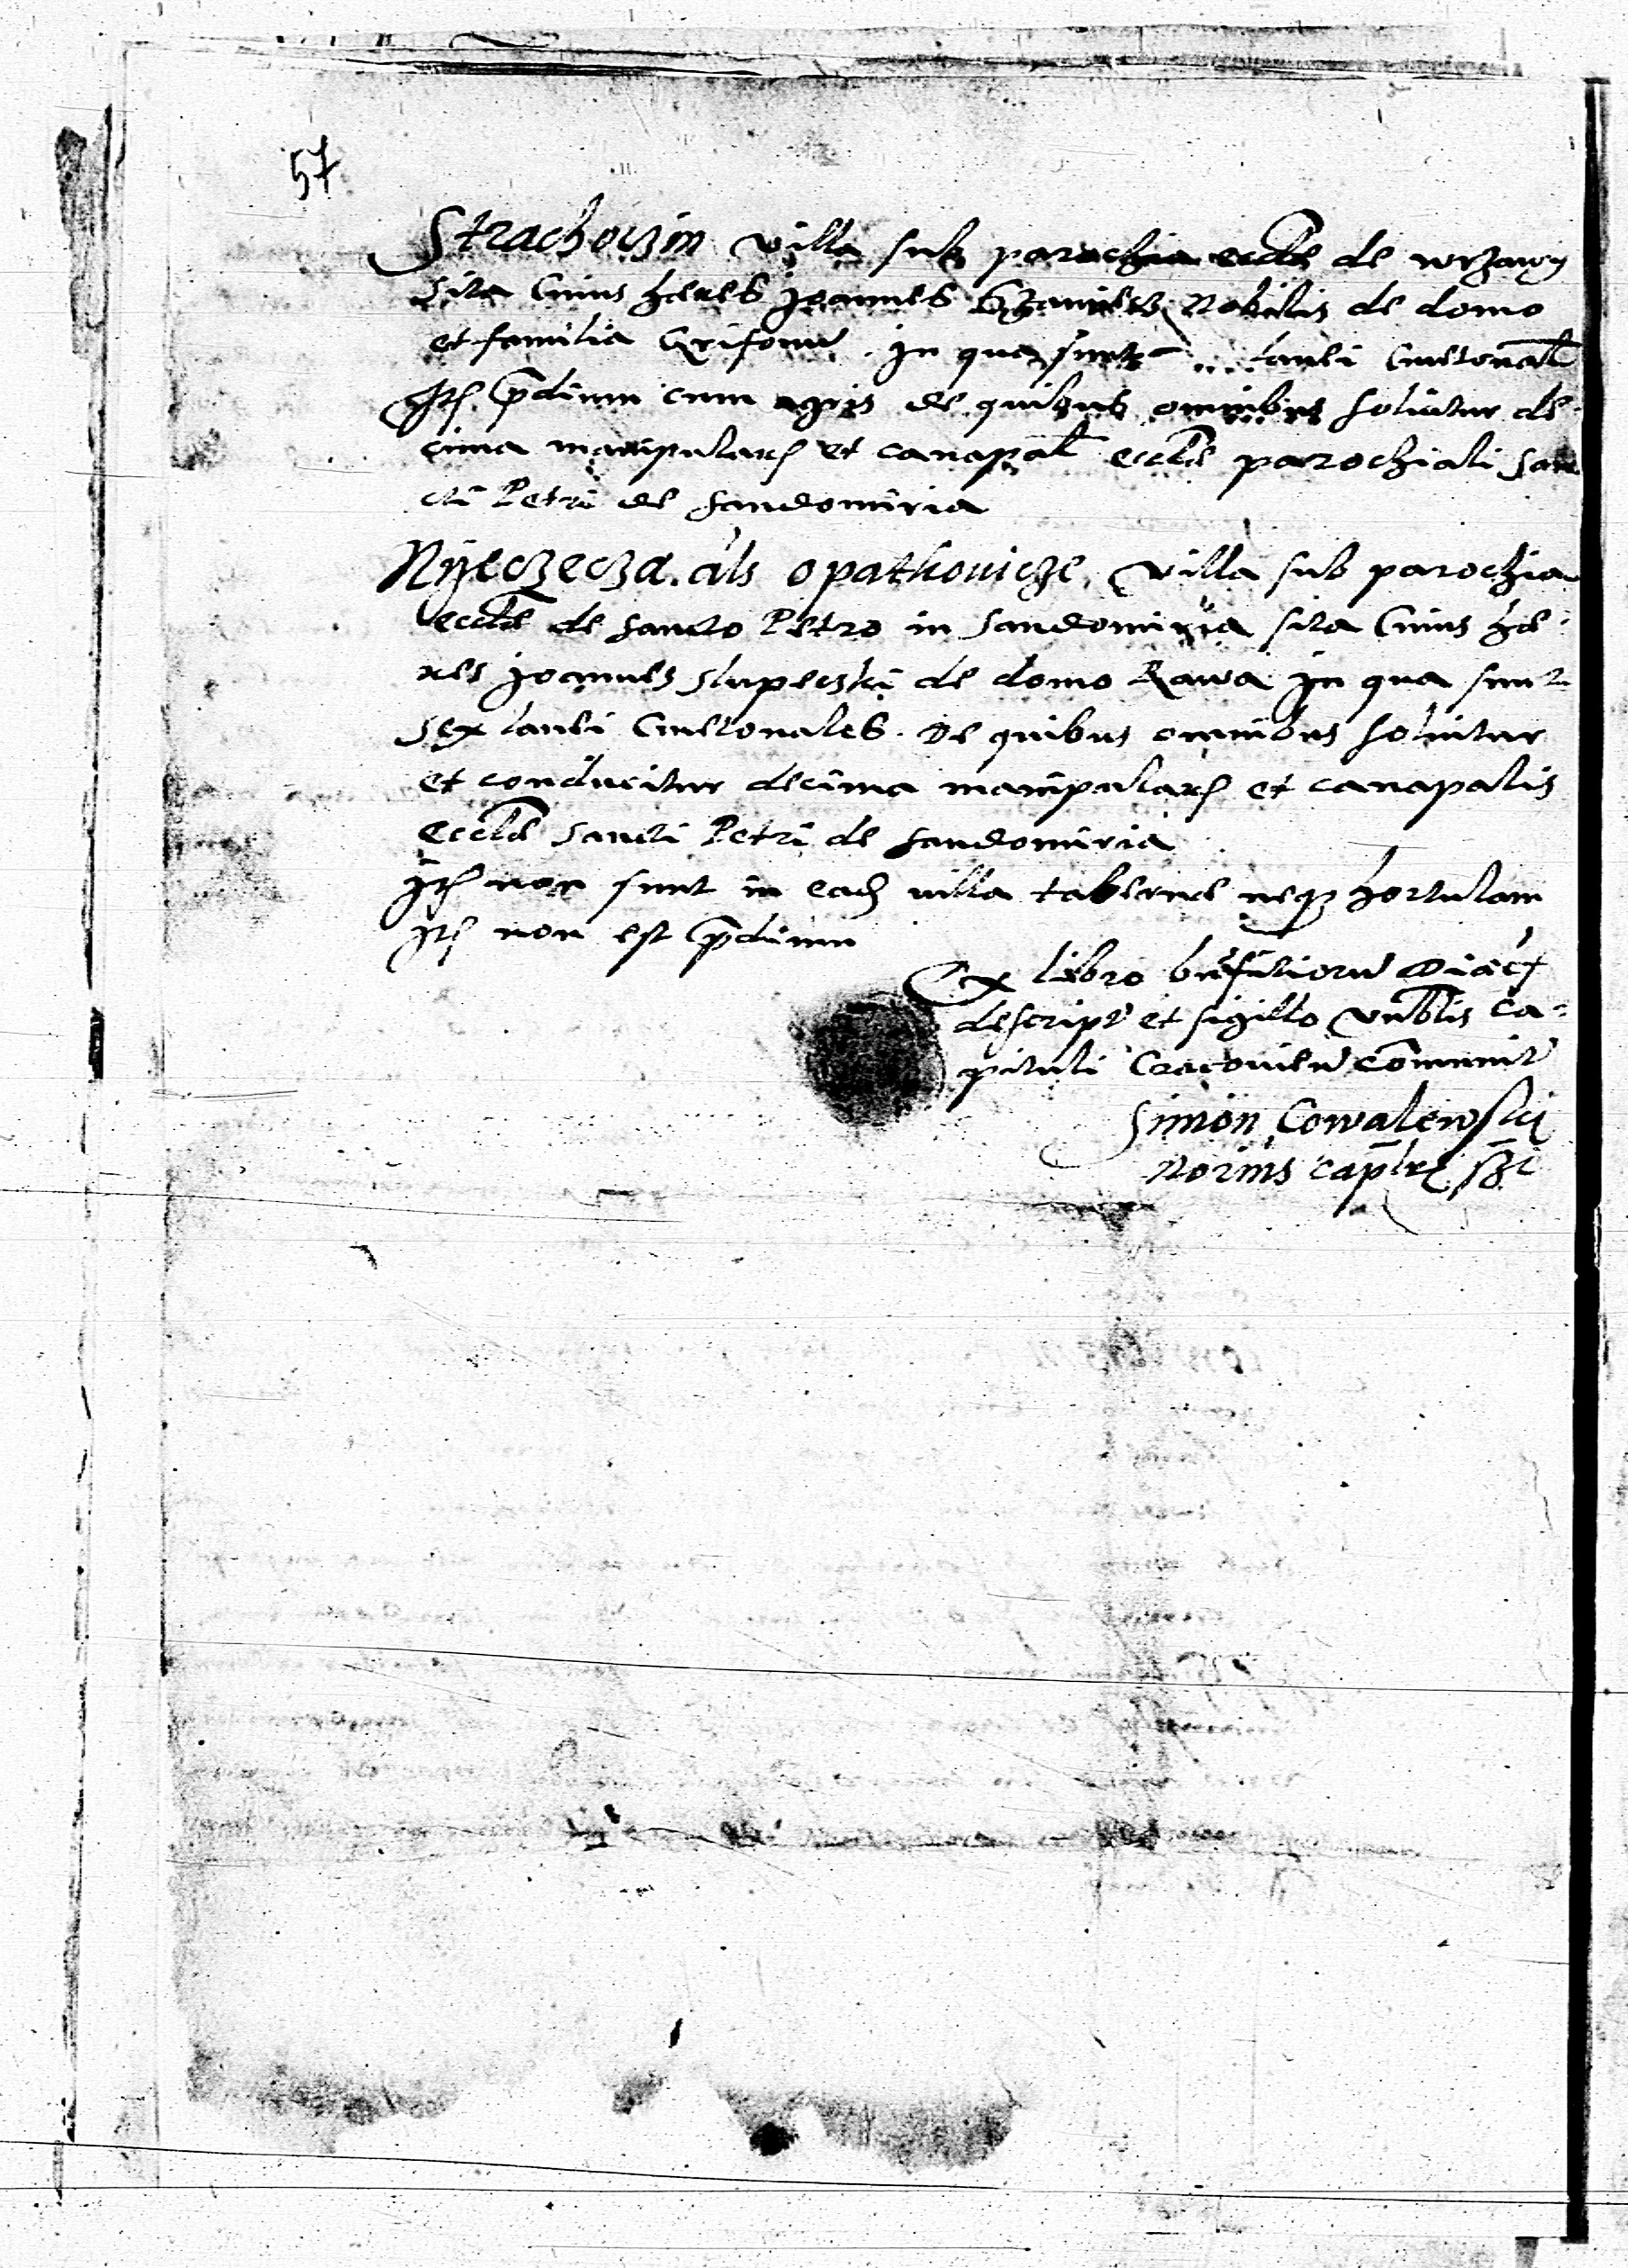 57
Strachoczin villa sub parochia eccłe de wrzawy
sita Cuius heres Joannes Nobilis de domo
et familia Grifonu. In qua sunt .... lanei Cmetonał
Itē p̄dium cum agris de quibus omnibus soluitur de-
cima manipularē et canapał eccłe parochiali san
cti Petri de Sandomiria
Nyeczecza. als opathouicze. villa sub parochia
eccłe de sancto Petro in Sandomiria sita Cuius he-
res Joannes slupeczki de domo Rawa In qua sunt
sex lanei Cmetonales. De quibus omnibus soluitur
et conducitur decima manipularē et canapalis
Eccłe Sancti Petri de Sandomiria
Itē non sunt in eadē villa taberne neqȝ hortulani
Itē non est p̄dium
Ex libro bn̄ficiorū Diœc
descriptū et sigillo Vn̄blis Ca-
pituli Cracovien̄ com̄munitū
Simon Cowalewski
Notrius Cap̄lri